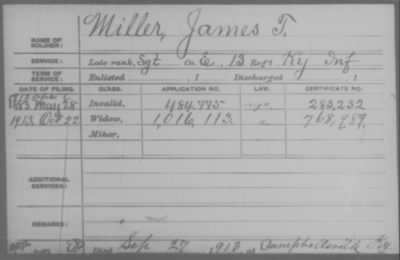 Miller, James T.
NAME OF SOLDIER:
SERVICE: Late rank, Sgt Co. E, 13 Reg't Ky Inf
TERM OF SERVICE: Enlisted , 1 Discharged , 1
DATE OF FILING. CLASS. APPLICATION NO. LAW. CERTIFICATE NO.
1883 May 28 Invalid, 484,775 283,232
1913, Oct 22 Widow, 1,016,113 768,989.
Minor,
ADDITIONAL SERVICES:
REMARKS:
Died Sep 27, 1913 at Campbellsville Ky